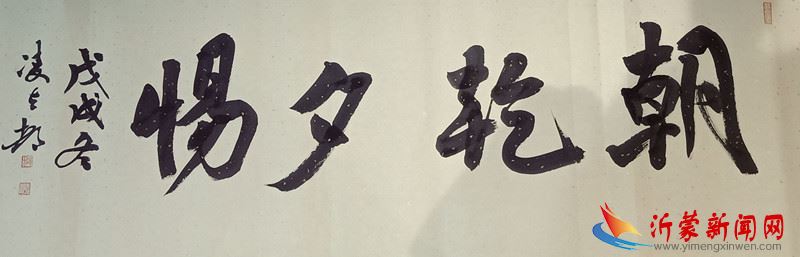 朝乾夕惕
戊戌冬
凌
沂蒙新闻网
www.yimengxinwen.com